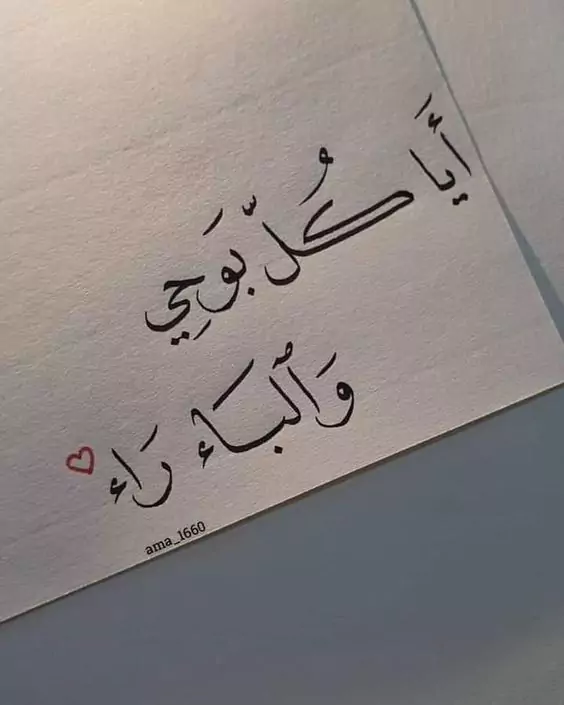 أَيَا كُلّ بَوحِي
وَٱلبَاء رَاء
ama_1660